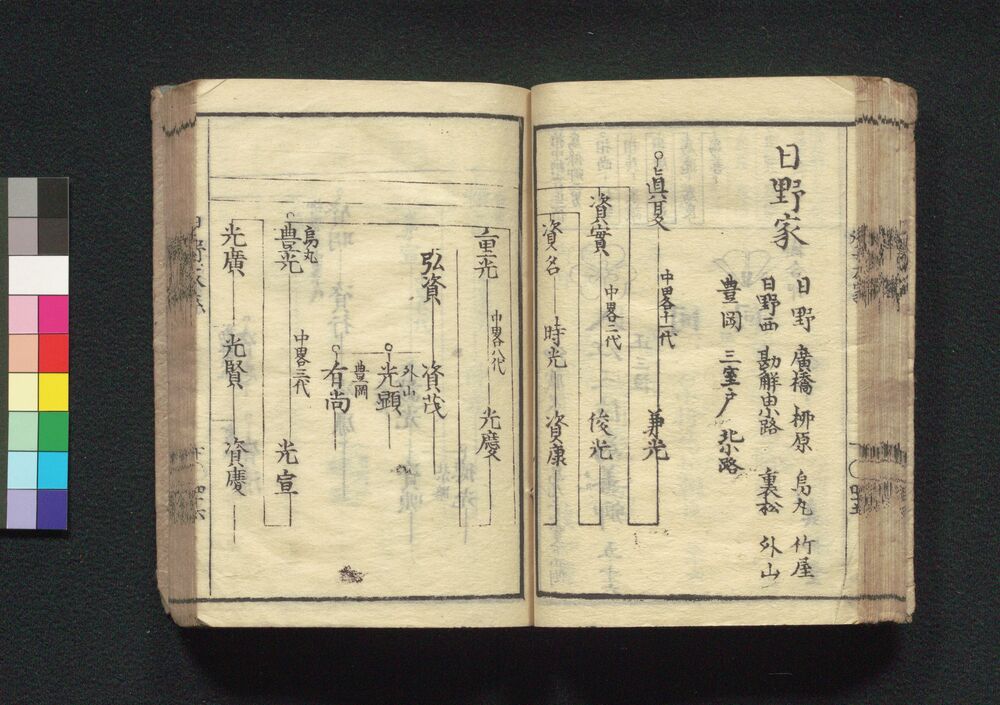 日野家
日野 廣橋 栁原 烏丸 竹屋
日野西 勘解由小路 裏松 外山
豊岡 三室戸 北小路
眞夏 中畧十一代 兼光
資實 中畧二代 俊光
資名 時光 資康
重光 中畧八代 光慶
弘資 資茂
外山 光顕
豊岡 有尚
烏丸
豊光 中畧三代 光宣
光廣 光賢 資慶
四十五
四十六